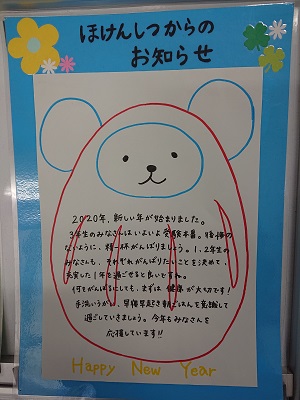 ほけんしつからの
お知らせ
2020年、新しい年が始まりました。
3年生のみなさんはいよいよ受験本番。後悔の
ないように、精一杯がんばりましょう。1、2年生の
みなさんも、それぞれがんばりたいことを決めて、
充実した1年を過ごせると良いですね。
何をがんばるにしても、まずは健康が大切です！
手洗いうがい、早寝早起き朝ごはんを意識して
過ごしていきましょう。今年もみなさんを
応援しています!!
Happy New Year